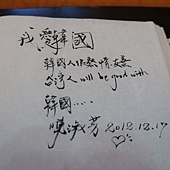 我愛韓國
韓國人很熱情、友善
台灣人 will be good with
韓國......
芳 2012.12.17